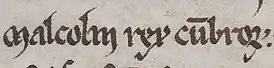 malcolm rex cūbroꝝ: